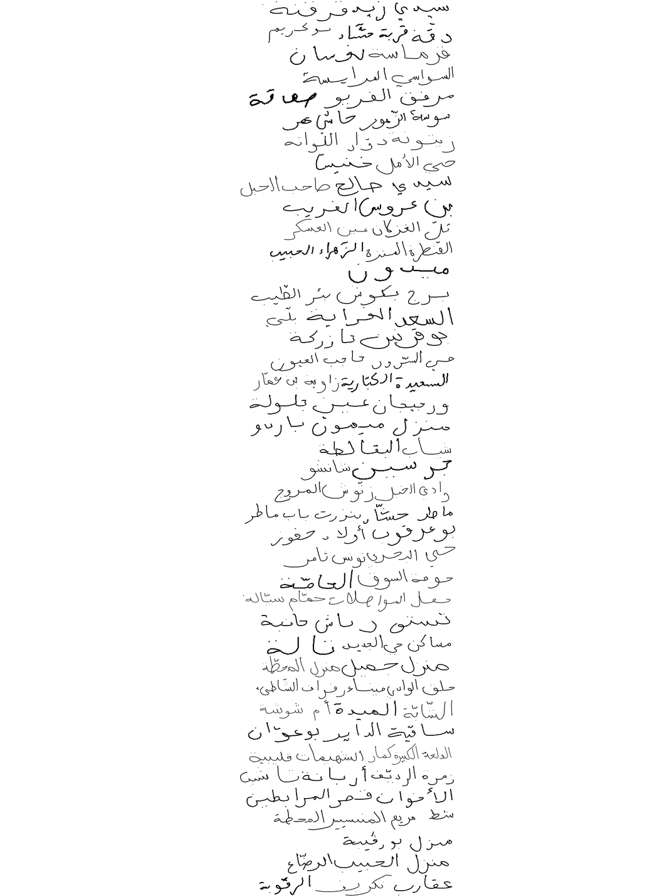 سيدي زيد قرقنة
دقة قرية حشاد بوكريم
قرماسة نفسان
السواسي العرايسة
مرفق الغربو صفاقة
سوسة الزهور حاشي عمر
زيتونة دوار اللواتة
حي الأمل خنيس
سيدي صالح صاحب الجبل
بن عروس الغريب
تل الغزلان عين العسكر
القنطرة المنزه الزهراء الحبيب
ميدون
برج بكوش بئر الطيب
السعد الحراية بلي
بوقرنين تازركة
حي السرور حاجب العيون
السعيدة الكبارية زاوية بن عمار
ورجيجان عين جلولة
منزل ميمون باردو
شباب البقالطة
جرسين شانشو
وادي الجبل زنوش المروج
ماطر حشاد بنزرت باب ماطر
بوعرقوب أولاد حفوز
حي البحر يانوس ثامر
حومة السوق العامة
معمل المواصلات حمام سيالة
تستور رياش حانبة
مساكن حي الجديد تالة
منزل جميل منزل المحطة
حلق الوادي ميناء فرحات الشاطئ
الشابة الميدة أم شوشة
ساقية الداير بوعوان
القلعة الكبيرة كمار الشهيمات قليبية
زمرة الرديف أريانة تاشب
الأخوات قصر المرابطين
شط مريم المنستير المحطة
منزل بورقيبة
منزل الحبيب الرضاع
عقارب تكرين الرقوبة